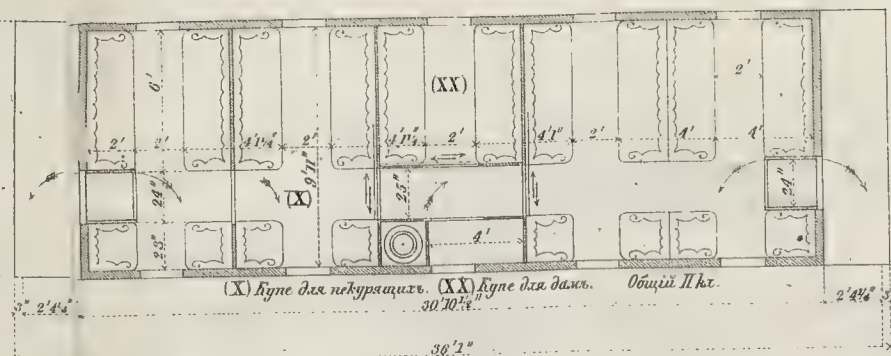 (XX)
6'
2'
2' 2' 4'1¼" 2' 4'1¼" 2' 4'1" 2' 4' 4'
9'11"
24" (X) 25" 24"
23" 4'
(X) Купе для некурящихъ. (XX) Купе для дамъ. Общій II кл.
3" 2'4¼" 30'10½" 2'4¼" 3"
36'1"